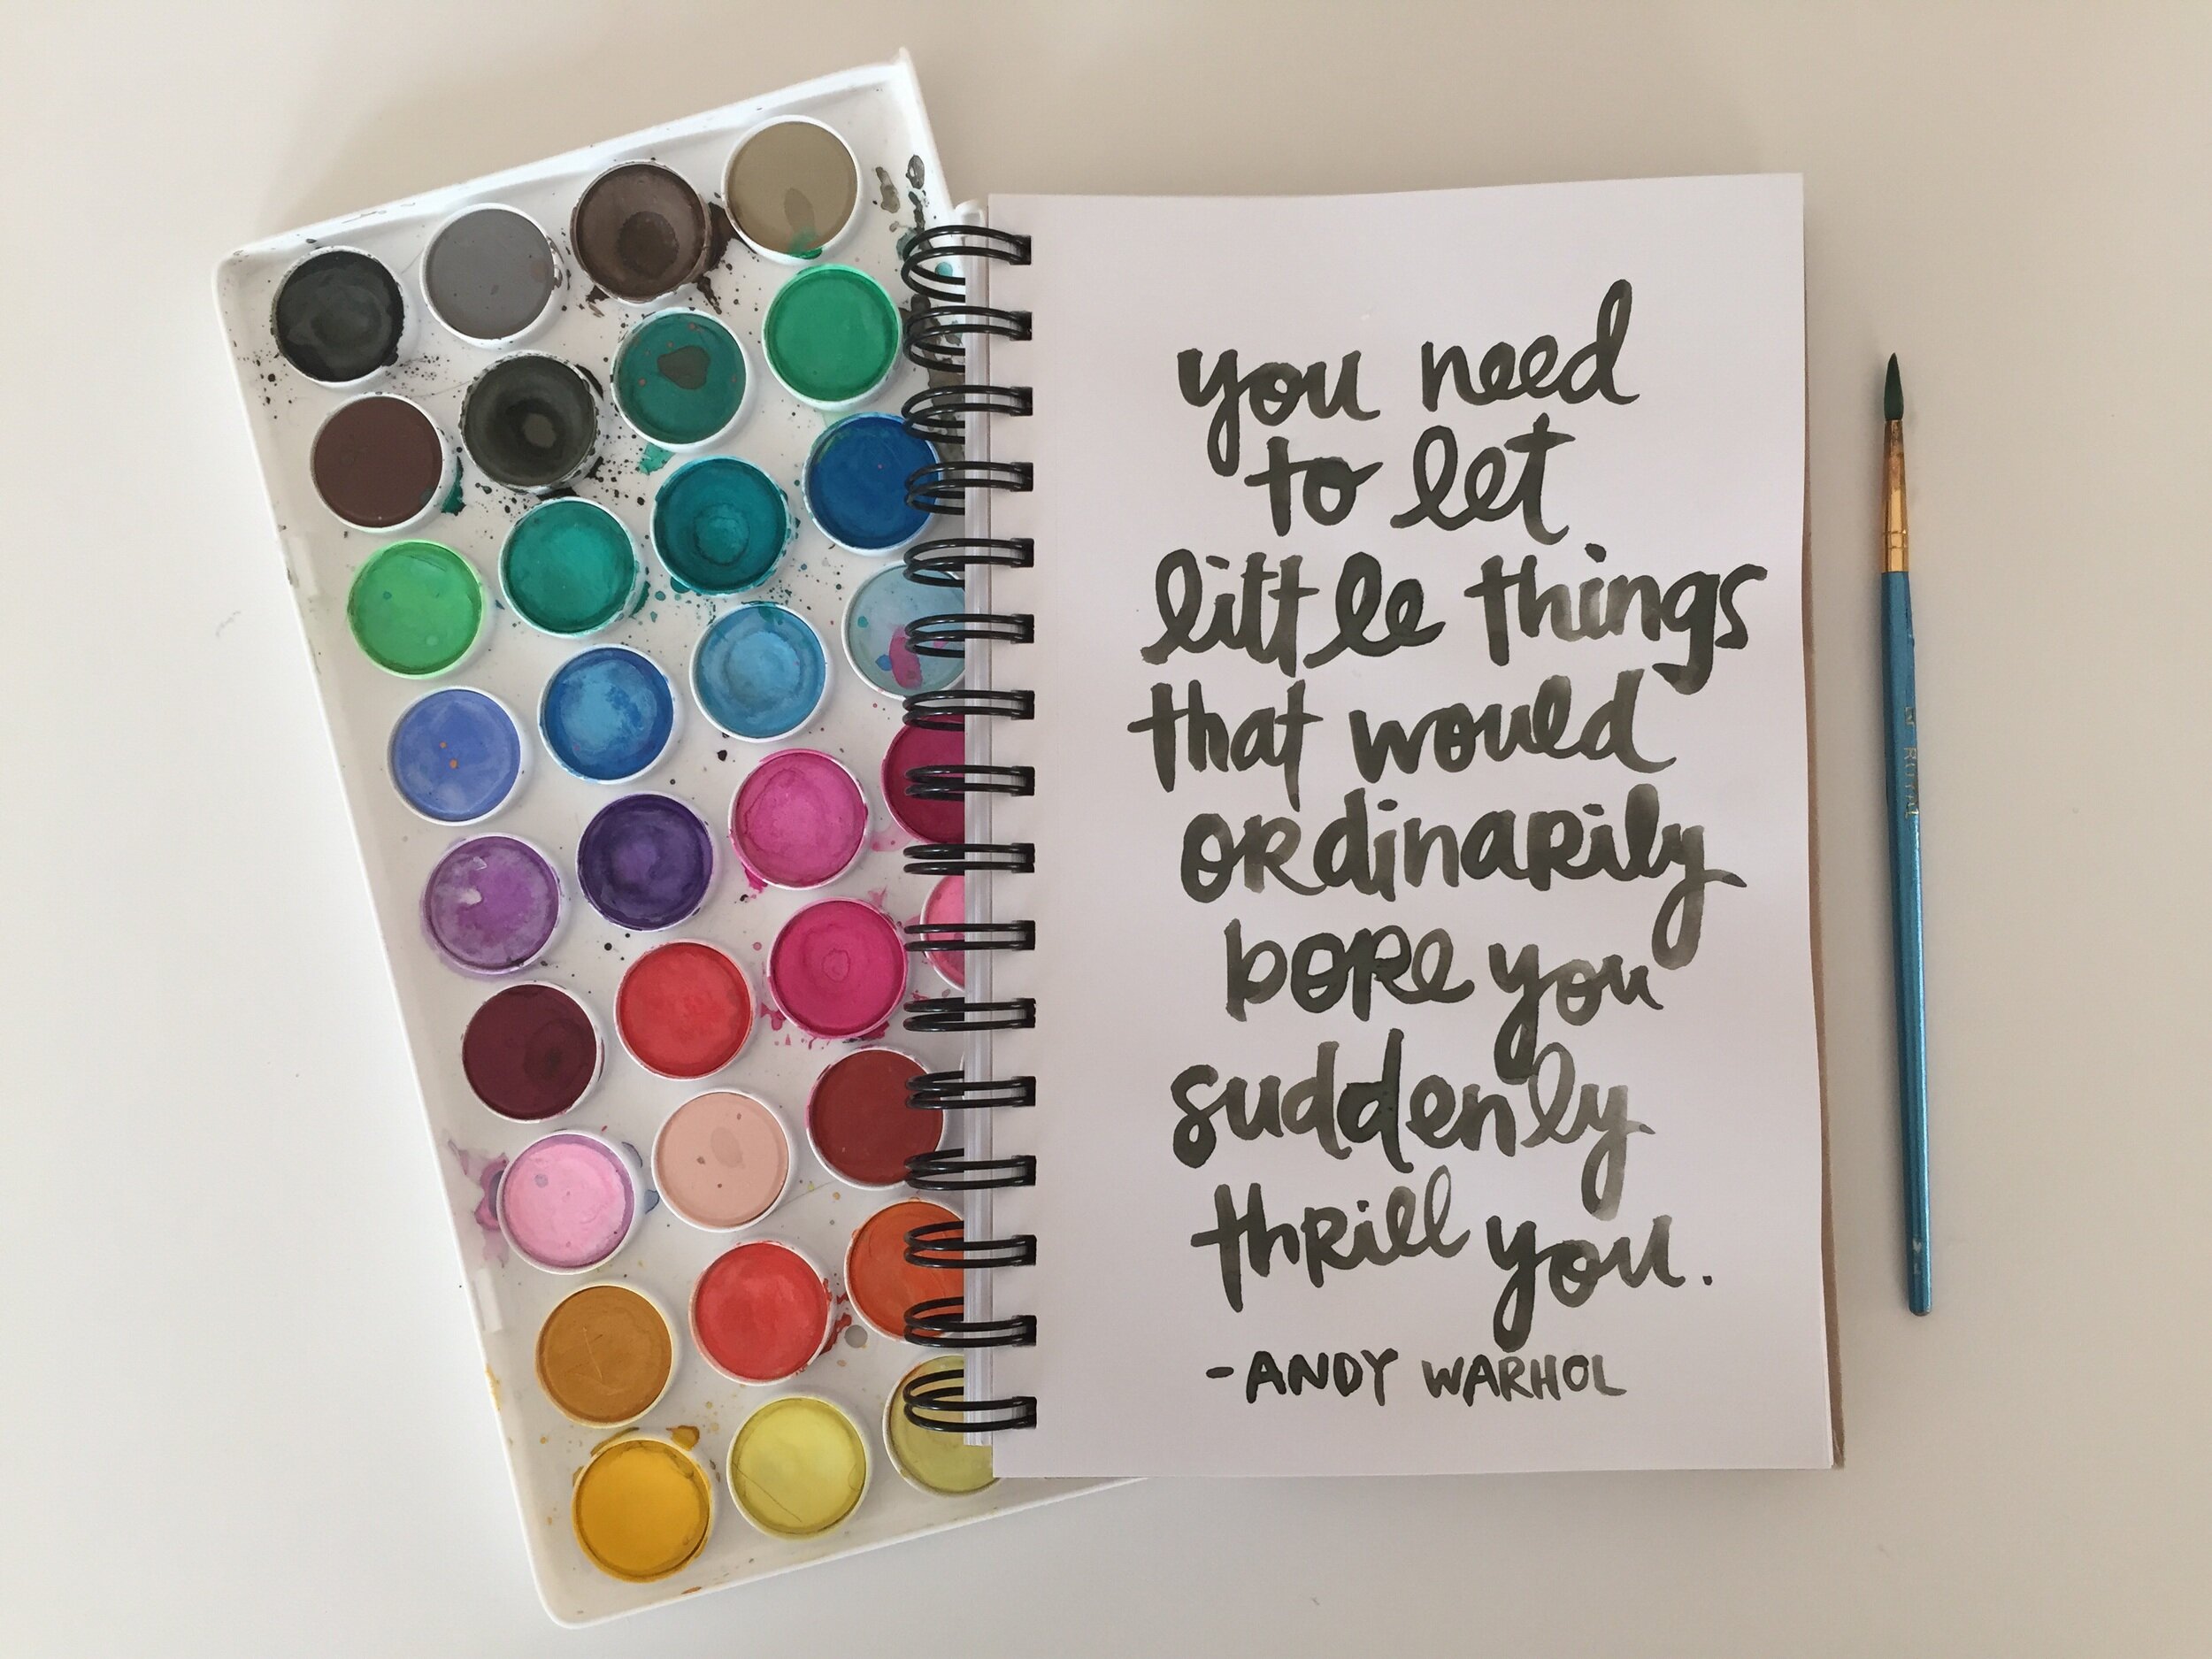 you need
to let
little things
that would
ordinarily
bore you
suddenly
thrill you.
-ANDY WARHOL